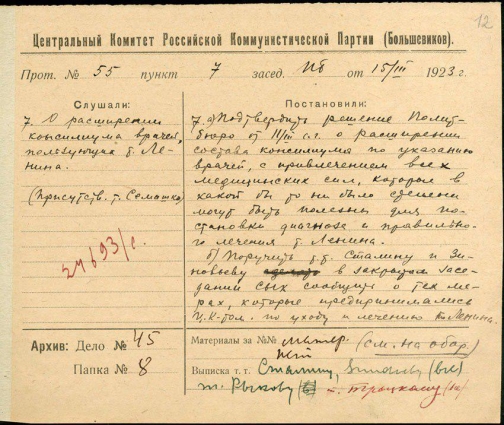 12
Центральный Комитет Российской Коммунистической Партии (Большевиков).
Прот. № 55 пункт 7 засед. ПБ от 15/III 1923 г.
Слушали:
7. О расширении
консилиума врачей,
пользующих т. Ле-
нина.
(Присутств. т. Семашко)
24693/с.
Постановили:
7. а) Подтвердить решение Полит-
бюро от 11/III с.г. о расширении
состава консилиума по указанию
врачей, с привлечением всех
медицинских сил, которые в
какой бы то ни было степени
могут быть полезны для по-
становки диагноза и правильно-
го лечения т. Ленина.
б) Поручить т.т. Сталину и Зи-
новьеву в закрытом засе-
дании сообщить о тех ме-
рах, которые предпринимались
Ц.К-том. по уходу и лечению т. Ленина.
Архив: Дело № 45
Папка № 8
Материалы за №№ матер.
(см. на обор.)
Выписка т. т. Сталину, Зиновьеву (вк)
т. Рыкову т. Троцкому